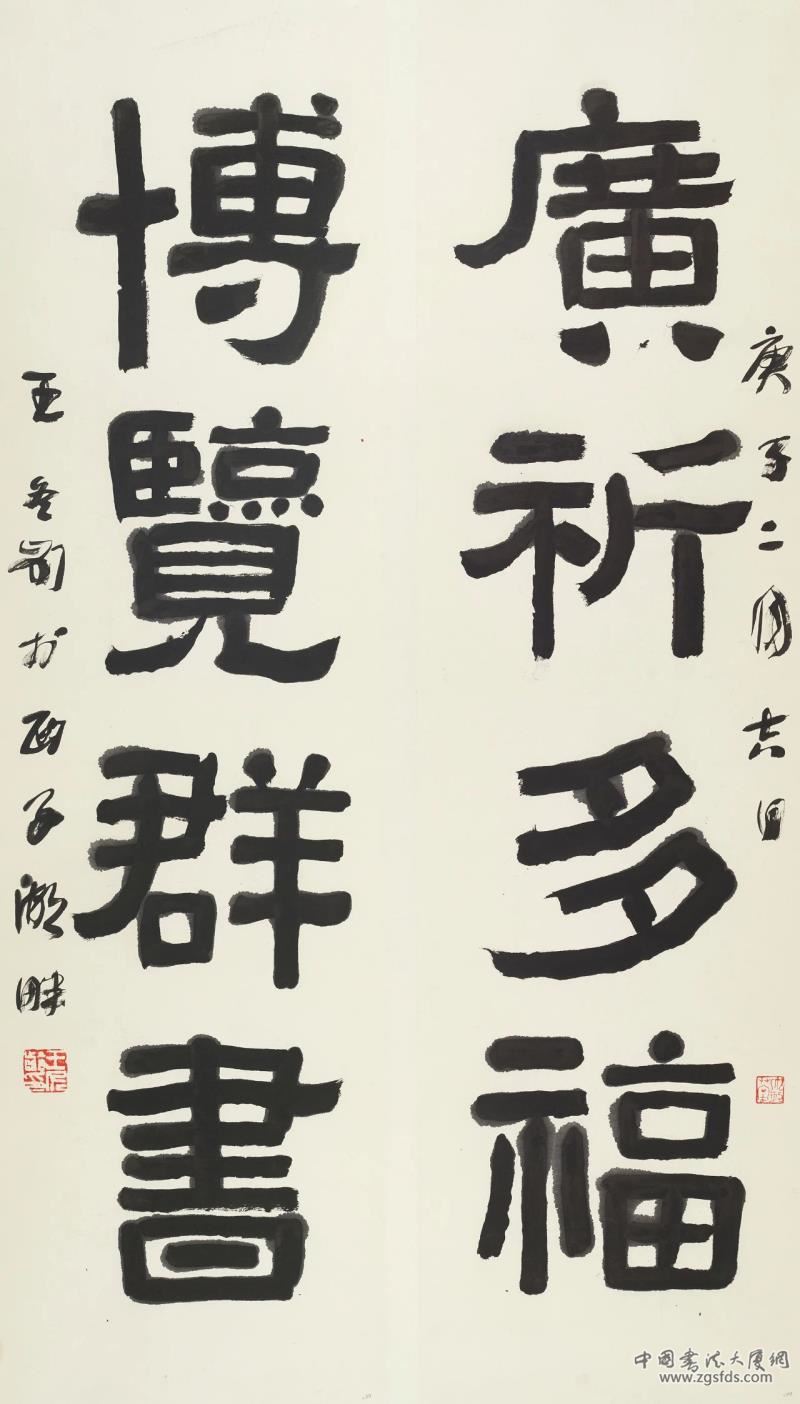 廣祈多福
庚子二月吉日
博覽群書
王冬齡於西子湖畔
中国书法大厦網
www.zgsfds.com